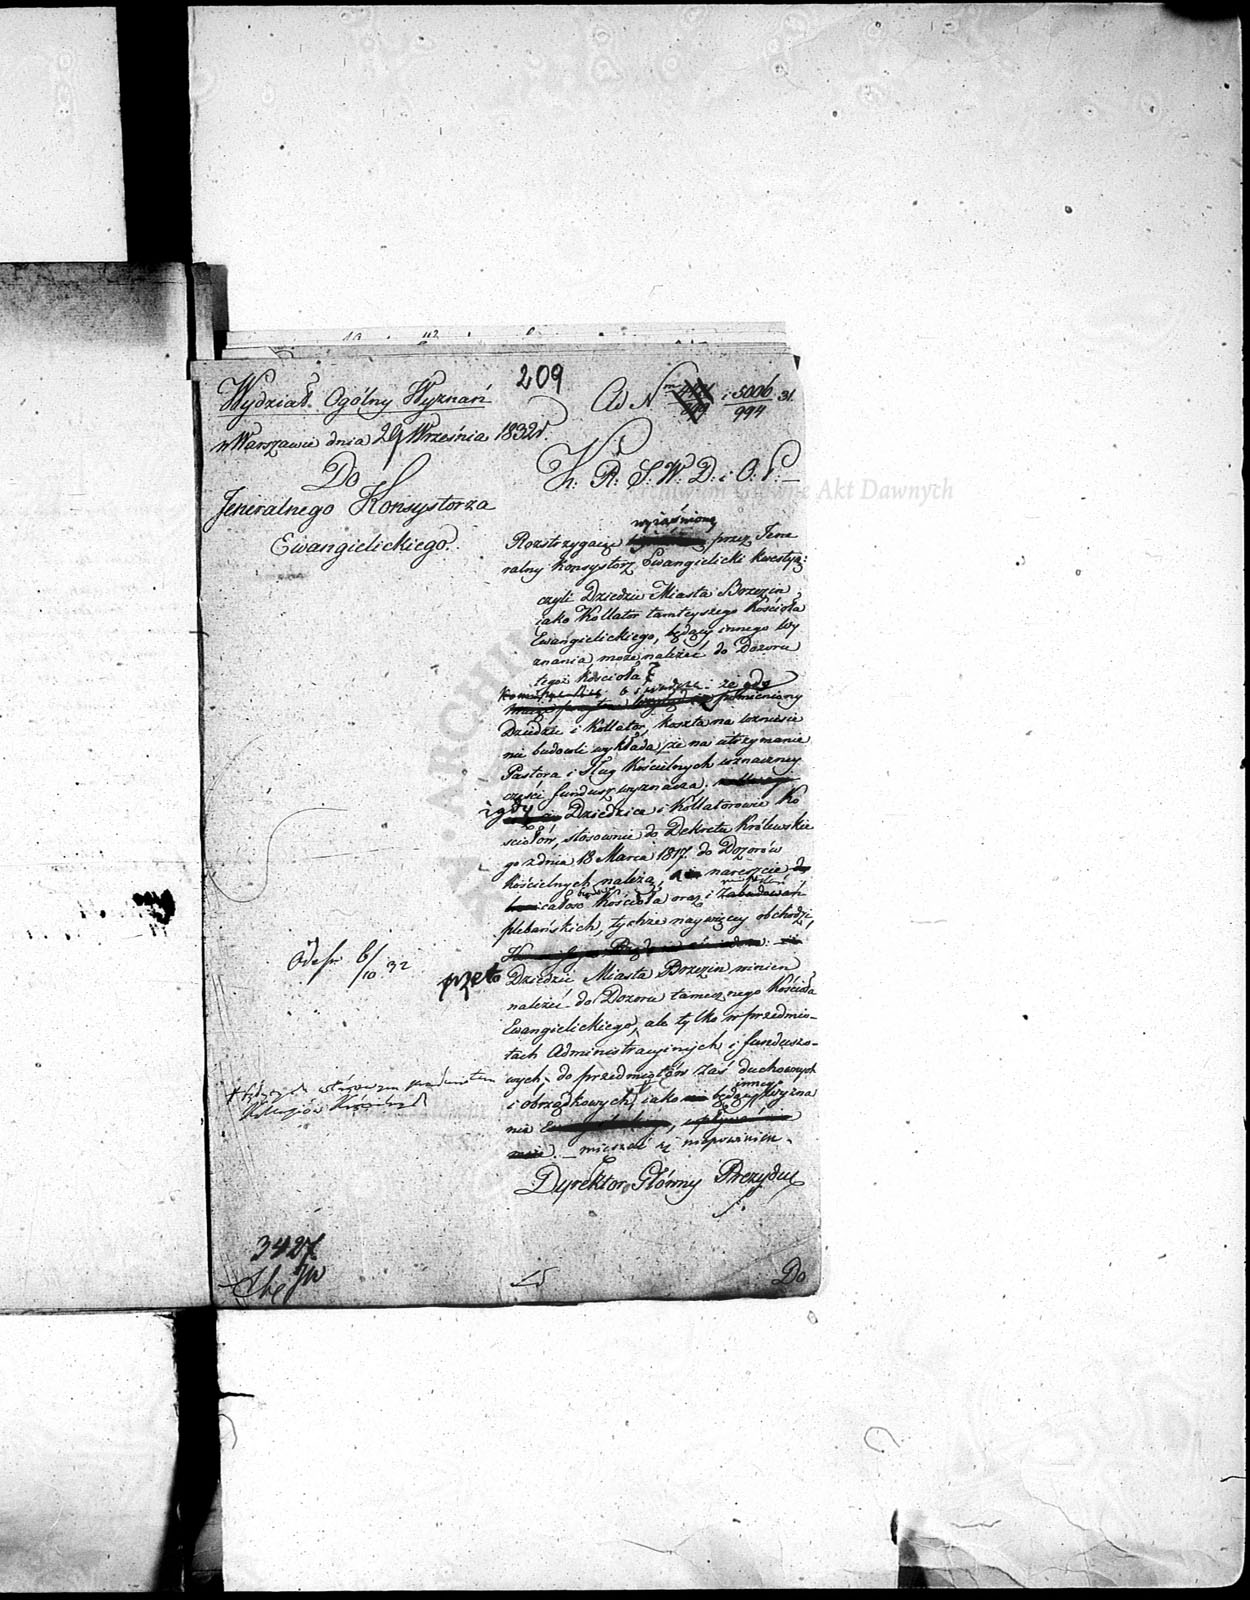 209
Wydział Ogólny Wyznań
w Warszawie dnia 29 Września 1832 r.
Do
Jeneralnego Konsystorza
Ewangielickiego.
Ad N i 5006/994 31.
K. R. S. W. D. i O. P.
Archiwum Główne Akt Dawnych
wyiaśnioną
Rozstrzygaiąc przez Jene
ralny Konsystorz Ewangielicki kwestyą:
czyli Dziedzic Miasta Brzezin
iako Kollator tamteyszego Kościoła
Ewangielickiego, będący innego Wy
znania, może należeć do Dozoru
tegoż Kościoła?
że gdy
pomieniony
Dziedzic i Kollator, koszta na wzniesie
nie budowli wykłada, że na utrzymanie
Pastora i Sług Kościelnych w znaczney
części fundusz wyznacza.
i gdy Dziedzice i Kollatorowie Ko
ściołów, stosownie do Dekretu Królewskie
go z dnia 18 Marca 1817. do Dozorów
Kościelnych należą, nareszcie
całość Kościoła oraz i Zabudowań
plebańskich, tychże naywięcey obchodzi,
przeto Dziedzic Miasta Brzezin winien
należeć do Dozoru tamecznego Kościoła
Ewangielickiego, ale tylko w przedmio-
tach Administracyinych i funduszo-
wych, do przedmiotów zaś duchownych
i obrządkowych, iako będący innego Wyzna
nia
mieszać się niepowinien.
Dyrektor Główny Prezydui
6/10 32
3427
Do